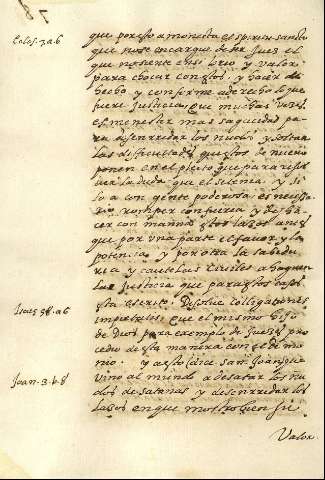 78
Colos. 3. a. 6
que por esso amonesta el spiritu sancto
que no se encargue de ser Juez el
que no siente en si brio y valor
para chocar con estos, y hacer de
hecho y conforme a derecho lo que
fuere Justicia, que muchas vezes
es menester mas sagacidad pa
ra desenredar los nudos, y soltar
las dificultades que estos le
ponen en el pleito que para
la duda que el
a con gente poderosa es necessa
rio romper con furia y desha
cer con manña estos lazos an
que por una parte el fauor y la
potencia y por otra la sabidu
ria y cautelas ciuiles ahoguen
la Justicia que para esto
sta escrito. Dissolue colligationes
Isai. 58. a. 6
impietatis: que el mismo hijo
de Dios para exemplo de Juezes pro
cedio de esta manera con el demo
nio. y assi dice san Joan que
Joan. 3. b. 8
vino al mundo a desatar los nu
dos de satanas y desenredar los
lazos en que mostro bien su
Valor